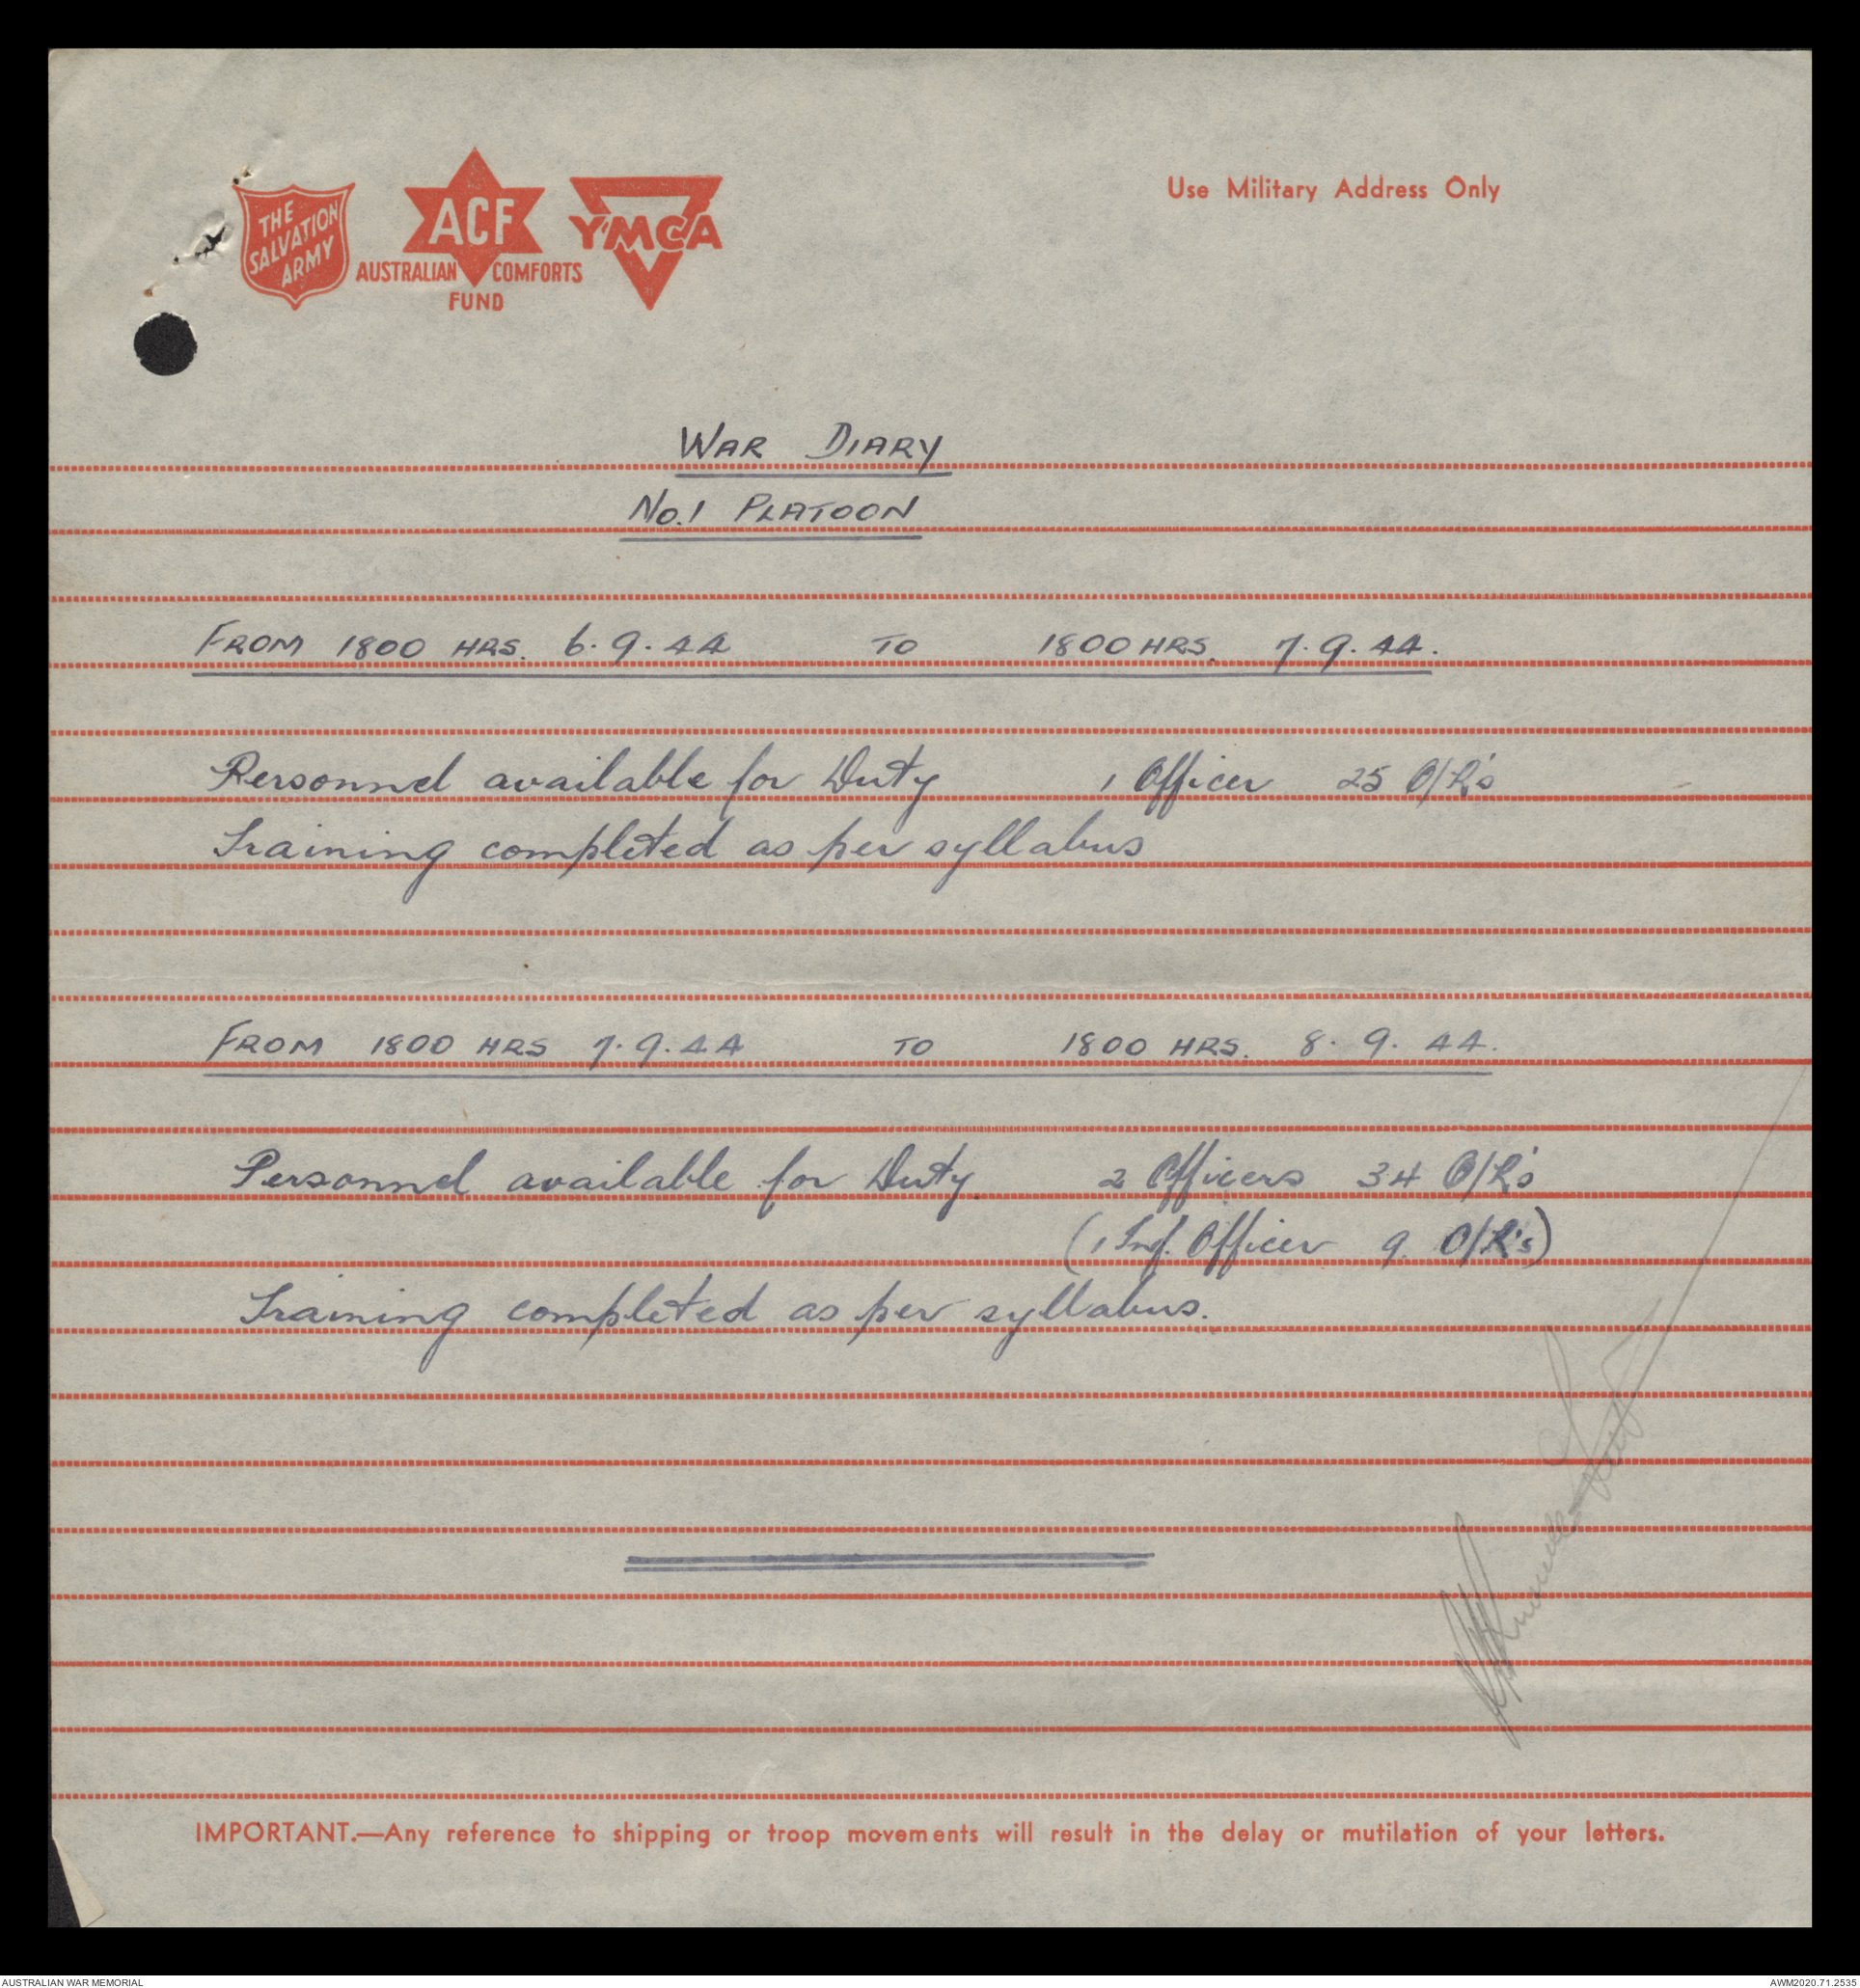 THE
SALVATION
ARMY
ACF
AUSTRALIAN COMFORTS
FUND
YMCA
Use Military Address Only
WAR DIARY
No.1 PLATOON
FROM 1800 HRS. 6.9.44 TO 1800 HRS. 7.9.44.
Personnel available for Duty 1 Officer 25 O/R's
Training completed as per syllabus
FROM 1800 HRS 7.9.44 TO 1800 HRS. 8.9.44.
Personnel available for Duty. 2 Officers 34 O/R's
(1 Inf. Officer 9. O/R's)
Training completed as per syllabus.
IMPORTANT.—Any reference to shipping or troop movements will result in the delay or mutilation of your letters.
AUSTRALIAN WAR MEMORIAL
AWM2020.71.2535